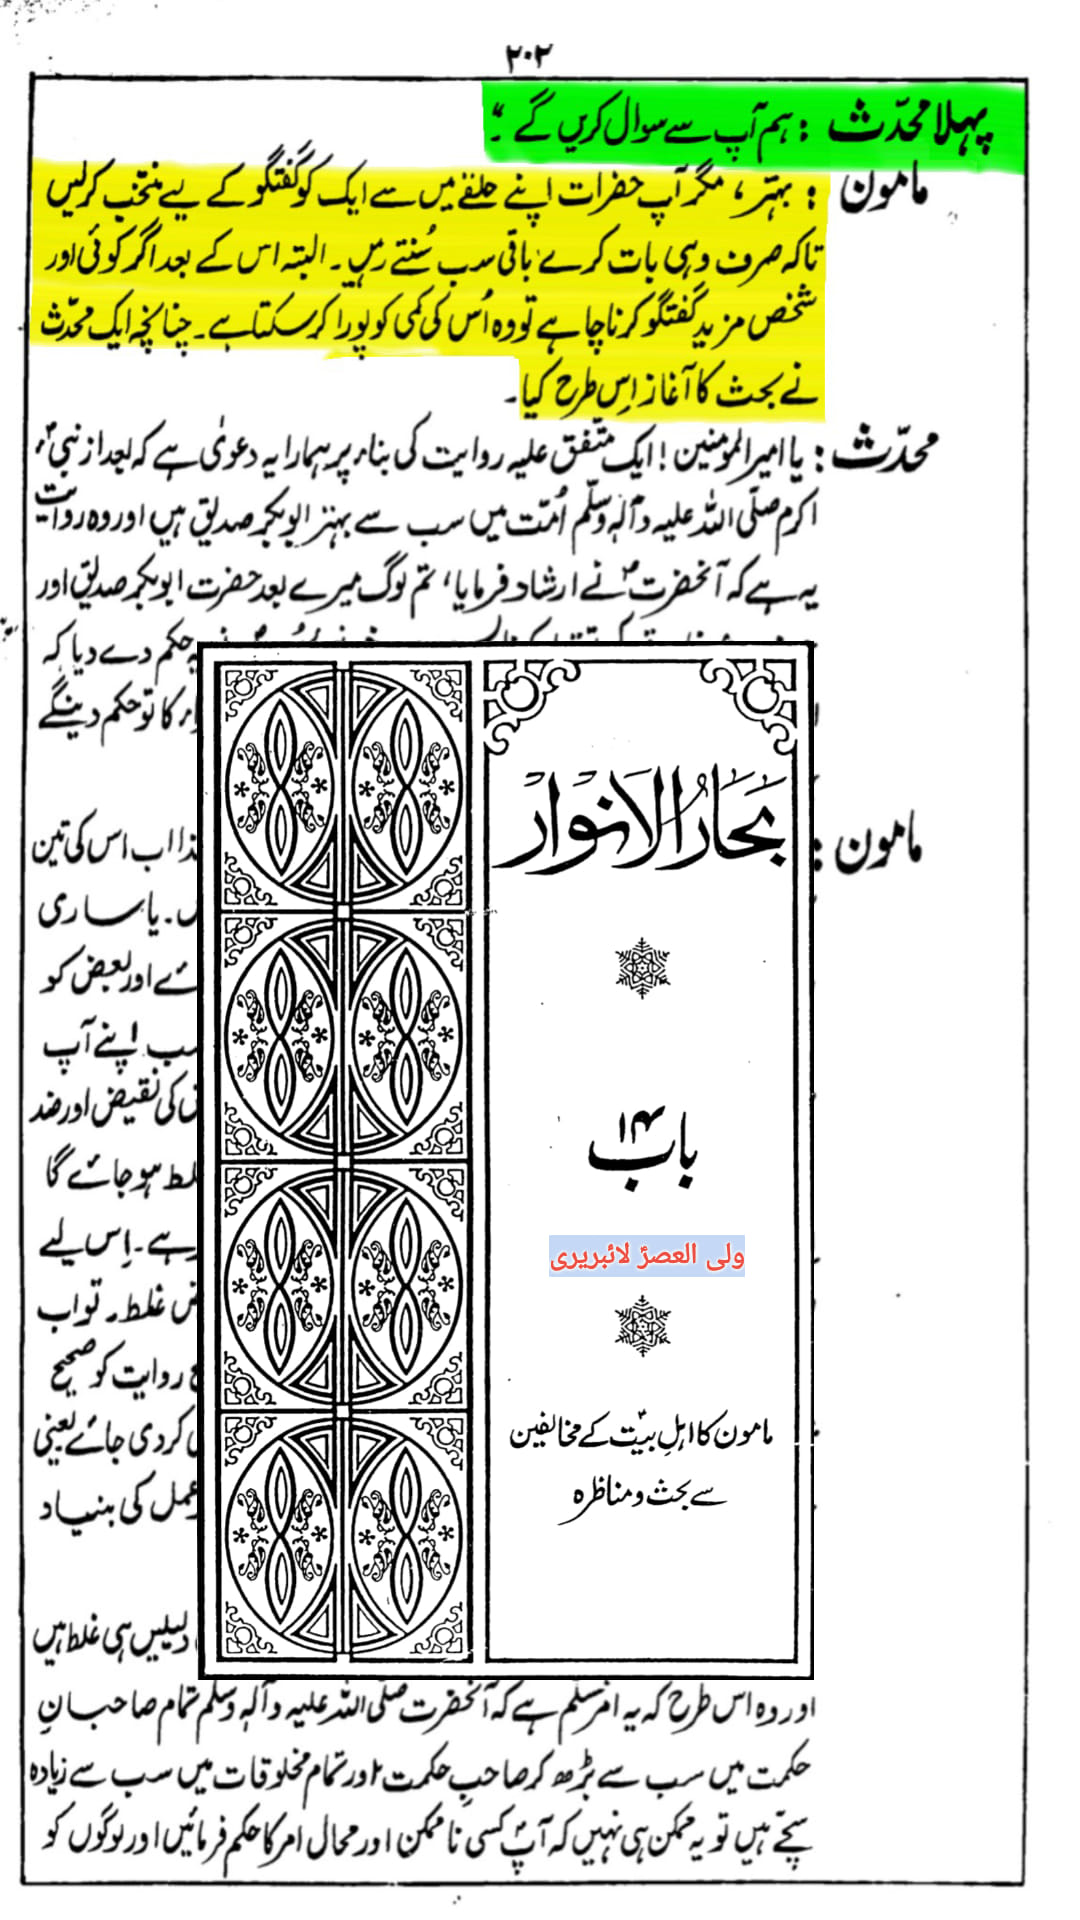 ۲۰۲
پہلا محدّث : ہم آپ سے سوال کریں گے ۔"
مامون : بہتر ، مگر آپ حضرات اپنے حلقے میں سے ایک کو گفتگو کے لیے منتخب کرلیں
تاکہ صرف وہی بات کرے باقی سب سُنتے رہیں ۔ البتہ اس کے بعد اگر کوئی اور
شخص مزید گفتگو کرنا چاہے تو وہ اُس کی کمی کو پورا کرسکتا ہے ۔ چنانچہ ایک محدّث
نے بحث کا آغاز اِس طرح کیا ۔
محدّث : یا امیرالمومنین ! ایک متّفق علیہ روایت کی بناء پر ہمارا یہ دعویٰ ہے کہ بعد از نبیِ
اکرم صلّی اللہ علیہ وآلہٖ وسلّم اُمّت میں سب سے بہتر ابوبکر صدیق ہیں اور وہ روایت
یہ ہے کہ آنحضرتؐ نے ارشاد فرمایا ، تم لوگ میرے بعد حضرت ابوبکر صدیق اور
حکم دے دیا کہ
کا تو حکم دینگے
مامون :
اب اس کی تین
۔ یا ساری
اور بعض کو
اپنے آپ
کی نقیض اور ضد
ہو جائے گا
ہے ۔ اِس لیے
غلط ۔ تو اب
روایت کو صحیح
کردی جائے یعنی
عمل کی بنیاد
دلیلیں ہی غلط ہیں
بحارُ الانوار
باب ۱۴
ولی العصرؑ لائبریری
مامون کا اہلِ بیتؑ کے مخالفین
سے بحث و مناظرہ
اور وہ اس طرح کہ یہ امر مسلّم ہے کہ آنحضرت صلی اللہ علیہ وآلہٖ وسلم تمام صاحبانِ
حکمت میں سب سے بڑھ کر صاحبِ حکمت اور تمام مخلوقات میں سب سے زیادہ
سچّے ہیں تو یہ ممکن ہی نہیں کہ آپؐ کسی ناممکن اور محال امر کا حکم فرمائیں اور لوگوں کو